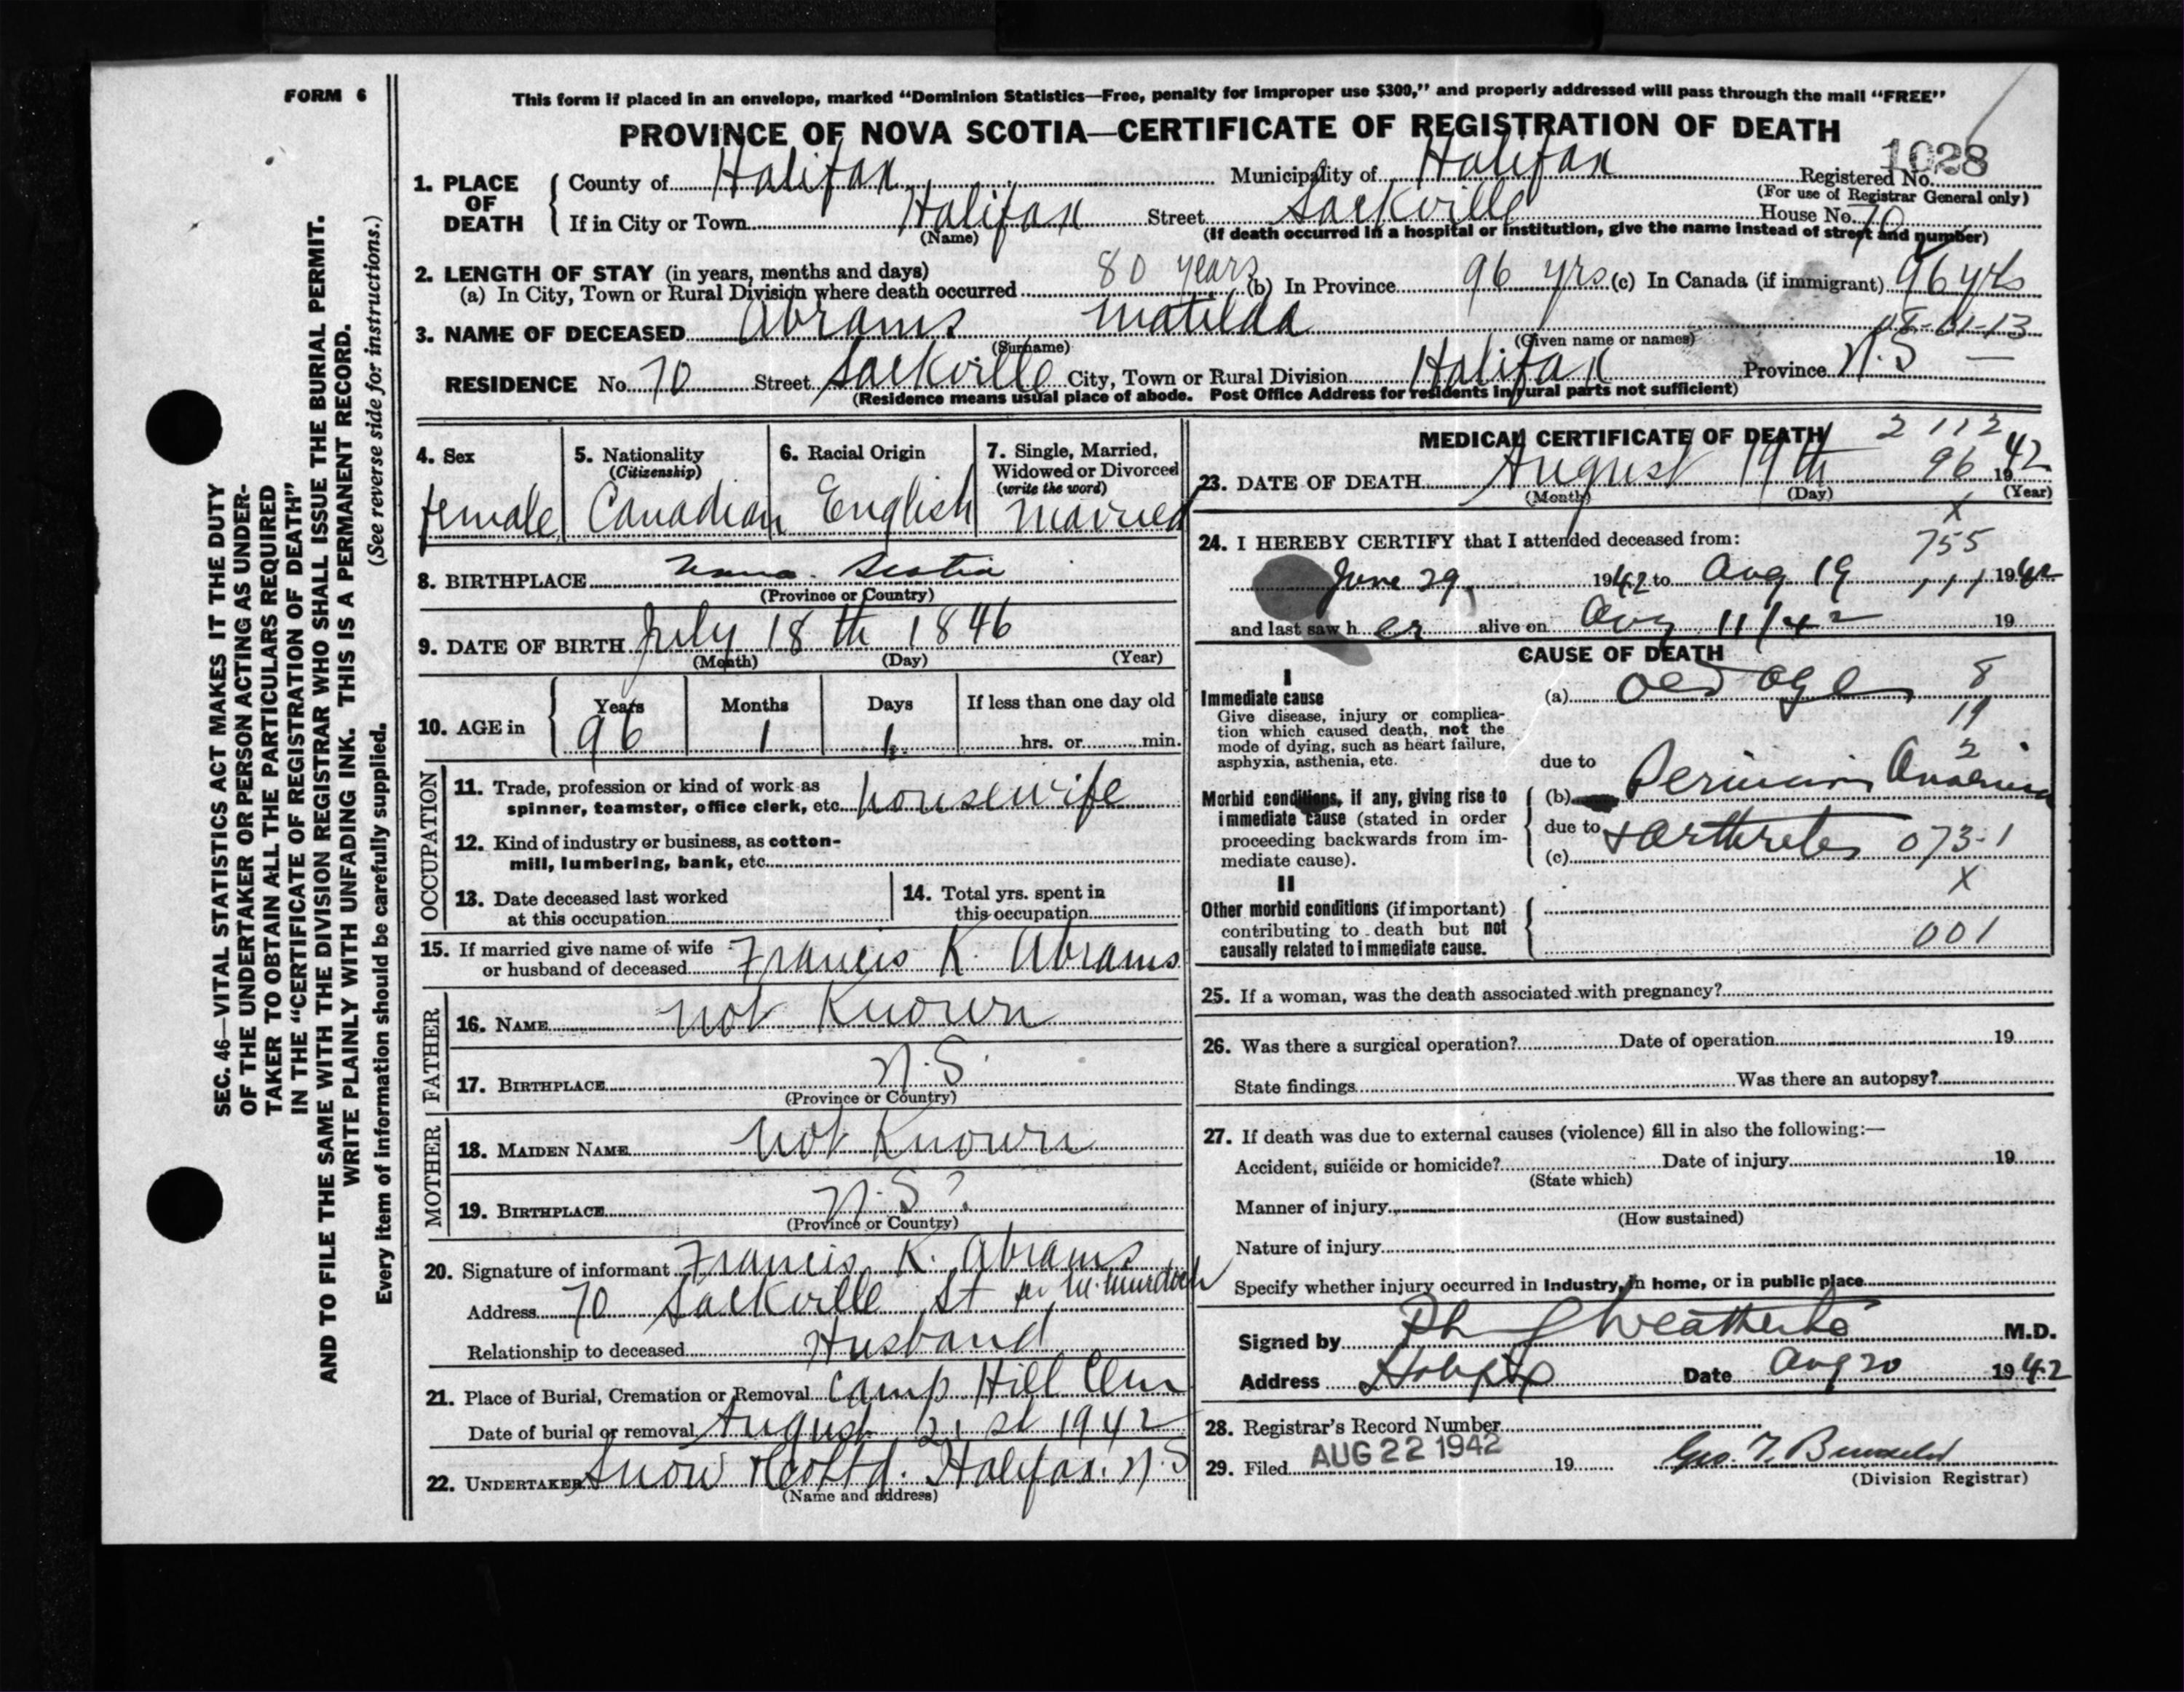 FORM 6
This form if placed in an envelope, marked "Dominion Statistics—Free, penalty for improper use $300," and properly addressed will pass through the mail "FREE"
PROVINCE OF NOVA SCOTIA—CERTIFICATE OF REGISTRATION OF DEATH
1028
1. PLACE OF DEATH County of Halifax Municipality of Halifax Registered No.
(For use of Registrar General only)
If in City or Town Halifax Street Sackville House No. 70
(Name) (If death occurred in a hospital or institution, give the name instead of street and number)
2. LENGTH OF STAY (in years, months and days)
(a) In City, Town or Rural Division where death occurred 80 years (b) In Province 96 yrs (c) In Canada (if immigrant) 96 yrs
3. NAME OF DECEASED Abrams Matilda 08-01-13
(Surname) (Given name or names)
RESIDENCE No. 70 Street Sackville City, Town or Rural Division Halifax Province N.S —
(Residence means usual place of abode. Post Office Address for residents in rural parts not sufficient)
4. Sex 5. Nationality (Citizenship) 6. Racial Origin 7. Single, Married, Widowed or Divorced (write the word)
female Canadian English Married
8. BIRTHPLACE Nova Scotia
(Province or Country)
9. DATE OF BIRTH July 18th 1846
(Month) (Day) (Year)
10. AGE in Years Months Days If less than one day old
96 1 1 hrs. or min.
OCCUPATION
11. Trade, profession or kind of work as
spinner, teamster, office clerk, etc. housewife
12. Kind of industry or business, as cotton-
mill, lumbering, bank, etc.
13. Date deceased last worked
at this occupation
14. Total yrs. spent in
this occupation
15. If married give name of wife
or husband of deceased Francis K. Abrams
FATHER
16. NAME not Known
17. BIRTHPLACE N.S.
(Province or Country)
MOTHER
18. MAIDEN NAME not Known
19. BIRTHPLACE N.S?
(Province or Country)
20. Signature of informant Francis K. Abrams
Address 70 Sackville St M. Murdoch
Relationship to deceased Husband
21. Place of Burial, Cremation or Removal Camp Hill Cem
Date of burial or removal August 21st 1942
22. UNDERTAKER Snow & Co Ltd. Halifax. N.S
(Name and address)
MEDICAL CERTIFICATE OF DEATH 2 112
23. DATE OF DEATH August 19th 96 1942
(Month) (Day) (Year)
X
24. I HEREBY CERTIFY that I attended deceased from: 755
June 29, 1942 to Aug 19 111 1942
and last saw h er alive on Aug 11/42 19
CAUSE OF DEATH
I
Immediate cause (a) Old Age 8
Give disease, injury or complica-
tion which caused death, not the
mode of dying, such as heart failure,
asphyxia, asthenia, etc.
19
2
due to
Morbid conditions, if any, giving rise to
immediate cause (stated in order
proceeding backwards from im-
mediate cause).
(b) Pernicious Anaemia
due to
(c) + arthritis 073-1
X
II
Other morbid conditions (if important)
contributing to death but not
causally related to immediate cause.
001
25. If a woman, was the death associated with pregnancy?
26. Was there a surgical operation? Date of operation 19
State findings Was there an autopsy?
27. If death was due to external causes (violence) fill in also the following:—
Accident, suicide or homicide? Date of injury 19
(State which)
Manner of injury
(How sustained)
Nature of injury
Specify whether injury occurred in Industry, in home, or in public place
Signed by M.D.
Address Halifax Date Aug 20 1942
28. Registrar's Record Number
29. Filed AUG 22 1942 19
(Division Registrar)
SEC. 46—VITAL STATISTICS ACT MAKES IT THE DUTY
OF THE UNDERTAKER OR PERSON ACTING AS UNDER-
TAKER TO OBTAIN ALL THE PARTICULARS REQUIRED
IN THE "CERTIFICATE OF REGISTRATION OF DEATH"
AND TO FILE THE SAME WITH THE DIVISION REGISTRAR WHO SHALL ISSUE THE BURIAL PERMIT.
WRITE PLAINLY WITH UNFADING INK. THIS IS A PERMANENT RECORD.
Every item of information should be carefully supplied. (See reverse side for instructions.)